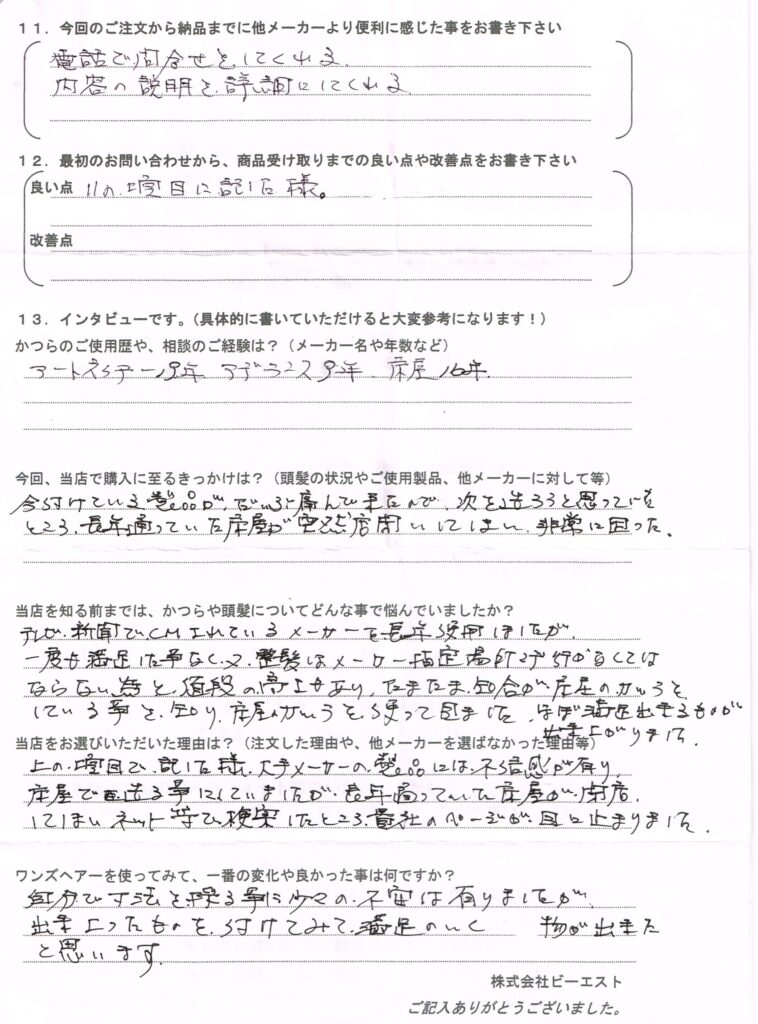 １１．今回のご注文から納品までに他メーカーより便利に感じた事をお書き下さい
電話で問合せをしてくれる。
内容の説明を、詳細にしてくれる
１２．最初のお問い合わせから、商品受け取りまでの良い点や改善点をお書き下さい
良い点 11の項目に記した様。
改善点
１３．インタビューです。（具体的に書いていただけると大変参考になります！）
かつらのご使用歴や、相談のご経験は？（メーカー名や年数など）
アートネイチャー 年 アデランス 年、床屋 年。
今回、当店で購入に至るきっかけは？（頭髪の状況やご使用製品、他メーカーに対して等）
今付けている製品が、だいぶ痛んで来たので、次を造ろうと思っていた
ところ、長年通っていた床屋が突然店閉いしてしまい、非常に困った。
当店を知る前までは、かつらや頭髪についてどんな事で悩んでいましたか？
テレビ、新聞でCMされているメーカーを長年使用しましたが、
一度も満足した事なく、又、整髪はメーカー指定場所でないと行かなくては
ならない点と、値段の高上もあり、たまたま、知合が床屋のかつらを
している事を、知り、床屋のかつらを使って来ました、ほぼ満足出来るものが
出来上がりました。
当店をお選びいただいた理由は？（注文した理由や、他メーカーを選ばなかった理由等）
上の項目で、記した様、大手メーカーの、製品には、不信感が有り、
床屋で造る事にしていましたが、長年通っていた床屋が、閉店、
してしまいネット等で、検索したところ、貴社のページが、目に止まりました。
ワンズヘアーを使ってみて、一番の変化や良かった事は何ですか？
自分で寸法を採る事に少々の、不安は有りましたが、
出来上ったものを、付けてみて、満足のいく 物が出来た
と思います。
株式会社ビーエスト
ご記入ありがとうございました。